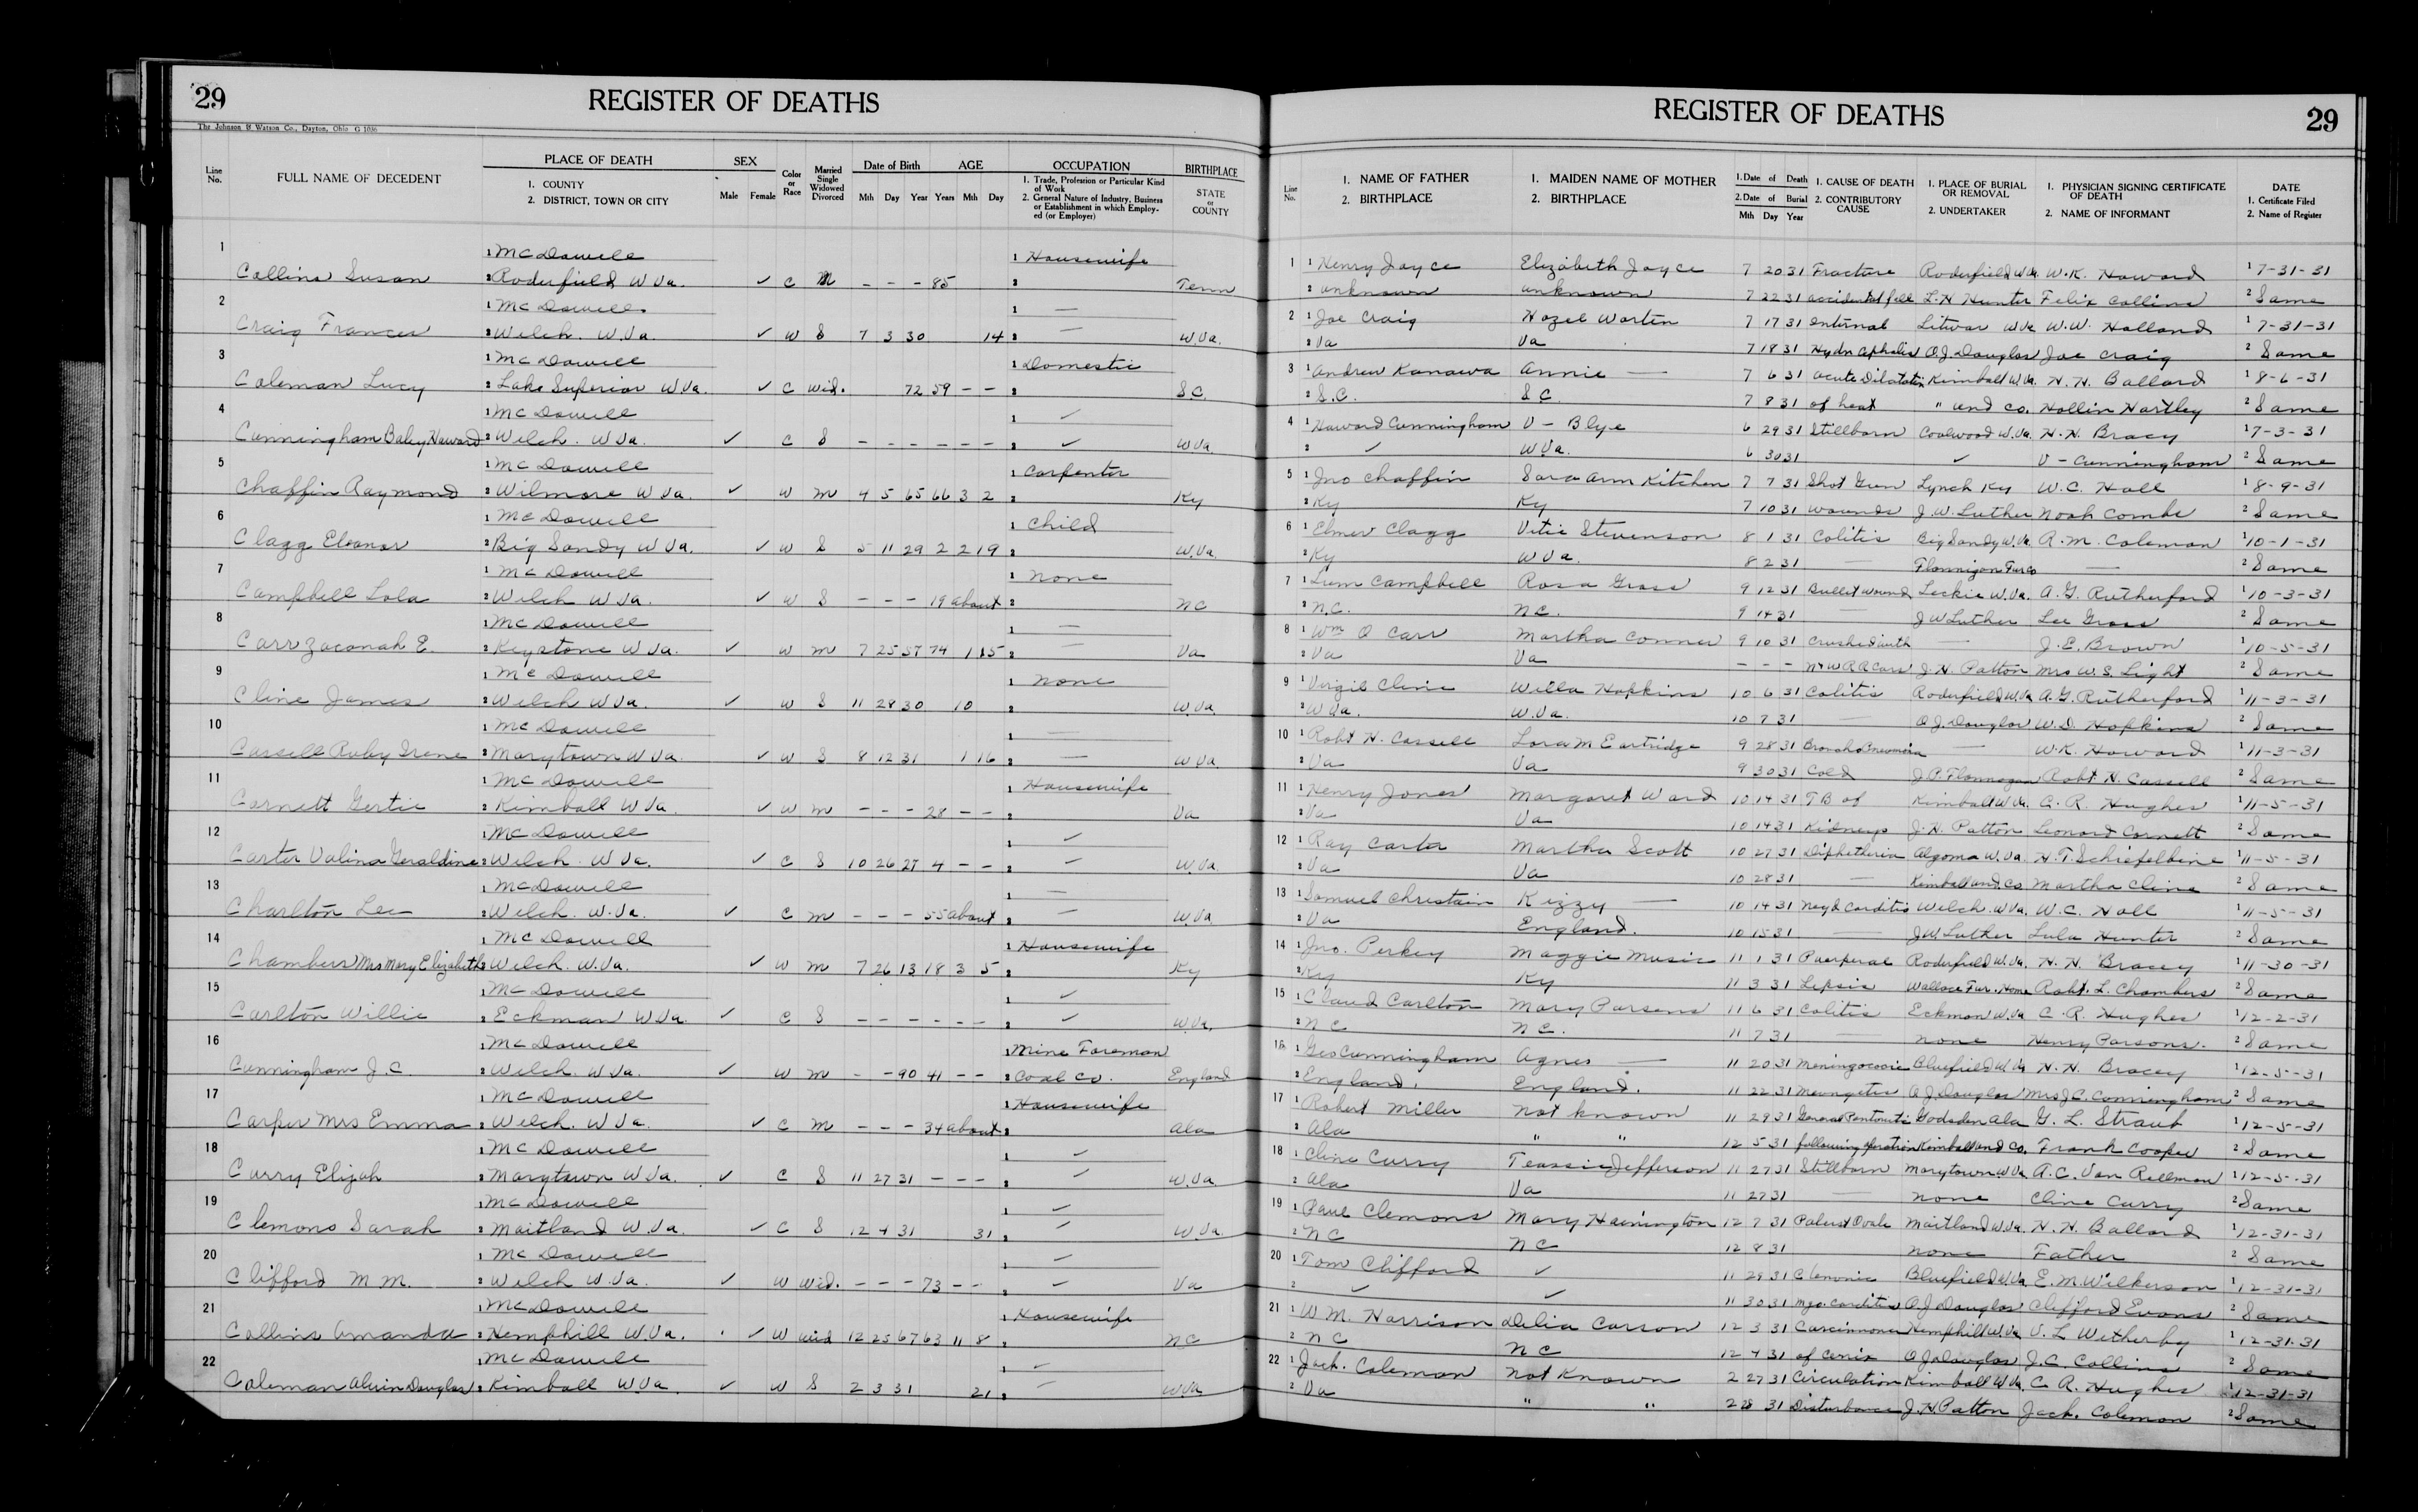 29
REGISTER OF DEATHS
The Johnson & Watson Co., Dayton, Ohio G 1036
Line No.
FULL NAME OF DECEDENT
PLACE OF DEATH
1. COUNTY
2. DISTRICT, TOWN OR CITY
SEX
Male Female
Color or Race
Married Single Widowed Divorced
Date of Birth
Mth Day Year
AGE
Years Mth Day
OCCUPATION
1. Trade, Profession or Particular Kind of Work
2. General Nature of Industry, Business or Establishment in which Employed (or Employer)
BIRTHPLACE
STATE or COUNTY
1 1 McDowell 1 Housewife
Collins Susan 2 Roderfield W Va. ✓ C M - - - 85 2 Tenn
2 1 McDowell 1 —
Craig Frances 2 Welch. W.Va. ✓ W S 7 3 30 14 2 — W Va.
3 1 McDowell 1 Domestic
Coleman Lucy 2 Lake Superior W Va. ✓ C Wid. 72 59 - - 2 S.C.
4 1 McDowell 1 ✓
Cunningham Baby Howard 2 Welch. W Va. ✓ C S - - - - - - 2 ✓ W Va
5 1 McDowell 1 Carpenter
Chaffin Raymond 2 Wilmore W Va. ✓ W M 4 5 65 66 3 2 2 Ky
6 1 McDowell 1 Child
Clagg Eleanor 2 Big Sandy W Va. ✓ W S 5 11 29 2 2 19 2 W.Va.
7 1 McDowell 1 None
Campbell Lola 2 Welch W Va. ✓ W S - - - 19 about 2 NC
8 1 McDowell 1 —
Carr Zaconah E. 2 Keystone W Va. ✓ W M 7 25 57 74 1 15 2 — Va
9 1 McDowell 1 None
Cline James 2 Welch W Va. ✓ W S 11 28 30 10 2 W.Va.
10 1 McDowell 1 —
Cassell Ruby Irene 2 Marytown W Va. ✓ W S 8 12 31 1 16 2 — W Va.
11 1 McDowell 1 Housewife
Cornett Gertie 2 Kimball W Va. ✓ W M - - - 28 - - 2 Va
12 1 McDowell 1 ✓
Carter Valina Geraldine 2 Welch. W Va. ✓ C S 10 26 27 4 - - 2 ✓ W.Va.
13 1 McDowell 1 —
Charlton Lee 2 Welch. W.Va. ✓ C M - - - 55 about 2 — W Va
14 1 McDowell 1 Housewife
Chambers Mrs Mary Elizabeth 2 Welch. W.Va. ✓ W M 7 26 13 18 3 5 2 Ky
15 1 McDowell 1 ✓
Carlton Willie 2 Eckman W Va. ✓ C S - - - - - - 2 ✓ W Va.
16 1 McDowell 1 Mine Foreman
Cunningham J.C. 2 Welch. W Va. ✓ W M - - 90 41 - - 2 Coal Co. England
17 1 McDowell 1 Housewife
Carper Mrs Emma 2 Welch. W Va. ✓ C M - - - 34 about 2 Ala
18 1 McDowell 1 ✓
Curry Elijah 2 Marytown W Va. ✓ C S 11 27 31 - - - 2 ✓ W.Va.
19 1 McDowell 1 ✓
Clemons Sarah 2 Maitland W Va. ✓ C S 12 4 31 31 2 ✓ W.Va.
20 1 McDowell 1 ✓
Clifford M M. 2 Welch W Va. ✓ W Wid. - - - 73 - - 2 ✓ Va
21 1 McDowell 1 Housewife
Collins Amanda 2 Hemphill W Va. ✓ W wid 12 25 67 63 11 8 2 NC
22 1 McDowell 1 ✓
Coleman Alvin Douglas 2 Kimball W Va. ✓ W S 2 3 31 21 2 — W Va
REGISTER OF DEATHS
29
Line No.
1. NAME OF FATHER
2. BIRTHPLACE
1. MAIDEN NAME OF MOTHER
2. BIRTHPLACE
1. Date of Death
2. Date of Burial
Mth Day Year
1. CAUSE OF DEATH
2. CONTRIBUTORY CAUSE
1. PLACE OF BURIAL OR REMOVAL
2. UNDERTAKER
1. PHYSICIAN SIGNING CERTIFICATE OF DEATH
2. NAME OF INFORMANT
DATE
1. Certificate Filed
2. Name of Register
1 1 Henry Joyce Elizabeth Joyce 7 20 31 Fracture Roderfield W Va. W.K. Howard 1 7-31-31
2 unknown unknown 7 22 31 accidental fall L.H Hunter Felix Collins 2 Same
2 1 Joe Craig Hazel Workin 7 17 31 Internal Litwar W Va W.W. Holland 1 7-31-31
2 Va Va 7 18 31 Hydrocephalis O.J. Douglas Joe Craig 2 Same
3 1 Andrew Kanawa Annie — 7 6 31 Acute Dilatation Kimball W.Va. H.H. Ballard 1 8-6-31
2 S.C. S C 7 8 31 of heat " und Co. Hollin Hartley 2 Same
4 1 Howard Cunningham V - Blye 6 29 31 Stillborn Coalwood W.Va. H.H. Bracy 1 7-3-31
2 ✓ W.Va. 6 30 31 ✓ V - Cunningham 2 Same
5 1 Jno Chaffin Sara Ann Kitchen 7 7 31 Shot Gun Lynch Ky W.C. Hall 1 8-9-31
2 Ky Ky 7 10 31 Wounds J.W. Luther Noah Combs 2 Same
6 1 Elmer Clagg Vitie Stevenson 8 1 31 Colitis Big Sandy W.Va. R.M. Coleman 1 10-1-31
2 Ky W Va. 8 2 31 — Flannigan Fur Co — 2 Same
7 1 Lum Campbell Rosa Gross 9 12 31 Bullet Wound Leckie W.Va. A.G. Rutherford 1 10-3-31
2 N.C. NC. 9 14 31 — J W Luther Lee Gross 2 Same
8 1 Wm O Carr Martha Conner 9 10 31 Crushed with — J.E. Brown 1 10-5-31
2 Va Va - - - N & W R R Cars J.H. Patton Mrs W.S. Light 2 Same
9 1 Virgil Cline Willa Hopkins 10 6 31 Colitis Roderfield W Va A.G. Rutherford 1 11-3-31
2 W Va. W.Va. 10 7 31 — O J. Douglas W.D. Hopkins 2 Same
10 1 Robt H. Cassell Lora M Eartridge 9 28 31 Broncho Pneumonia — W.K. Howard 1 11-3-31
2 Va Va 9 30 31 Cold J.P. Flannagan Robt H. Cassell 2 Same
11 1 Henry Jones Margaret Ward 10 14 31 TB of Kimball W Va. C.R. Hughes 1 11-5-31
2 Va Va 10 14 31 Kidneys J.H. Patton Leonard Cornett 2 Same
12 1 Ray Carter Martha Scott 10 27 31 Diphetheria Algoma W.Va. H.T. Schiefelbine 1 11-5-31
2 Va Va 10 28 31 — Kimball und. Co Martha Cline 2 Same
13 1 Samuel Christain Kizzy — 10 14 31 Myo Carditis Welch. W Va. W.C. Hall 1 11-5-31
2 Va England. 10 15 31 — J W Luther Lula Hunter 2 Same
14 1 Jno. Perkey Maggie Music 11 1 31 Puerperal Roderfield W.Va. H.H. Bracey 1 11-30-31
2 Ky Ky 11 3 31 Sepsis Wallace Fur. Home Robt. L. Chambers 2 Same
15 1 Claud Carlton Mary Parsons 11 6 31 Colitis Eckman W.Va C.R. Hughes 1 12-2-31
2 N C N C. 11 7 31 — none Henry Parsons. 2 Same
16 1 Geo Cunningham Agnes — 11 20 31 Meningococcic Bluefield W Va H.H. Bracey 1 12-5-31
2 England. England. 11 22 31 Meningitis O J. Douglas Mrs J.C. Cunningham 2 Same
17 1 Robert Miller not known 11 29 31 General Peritonitis Gadsden Ala G.L. Straub 1 12-5-31
2 Ala " " 12 5 31 following operation Kimball und Co. Frank Cooper 2 Same
18 1 Cline Curry Teassie Jefferson 11 27 31 Stillborn Marytown W.Va A.C. Van Rellmon 1 12-5-31
2 Ala Va 11 27 31 — none Cline Curry 2 Same
19 1 Paul Clemons Mary Hainington 12 7 31 Patent Ovale Maitland W.Va. H.H. Ballard 1 12-31-31
2 N C N C 12 8 31 none Father 2 Same
20 1 Tom Clifford ✓ 11 29 31 Chronic Bluefield W.Va E.M. Wilkerson 1 12-31-31
2 ✓ ✓ 11 30 31 Myo. Carditis O J Douglas Clifford Evans 2 Same
21 1 W.M. Harrison Delia Carson 12 3 31 Carcinoma Hemphill W.Va V.L Wetherby 1 12-31-31
2 N C N C 12 4 31 of Cervix O J. Douglas J.C. Collins 2 Same
22 1 Jack. Coleman not Known 2 27 31 Circulation Kimball W Va. C R. Hughes 1 12-31-31
2 Va " " 2 28 31 Disturbance J.H. Patton Jack. Coleman 2 Same